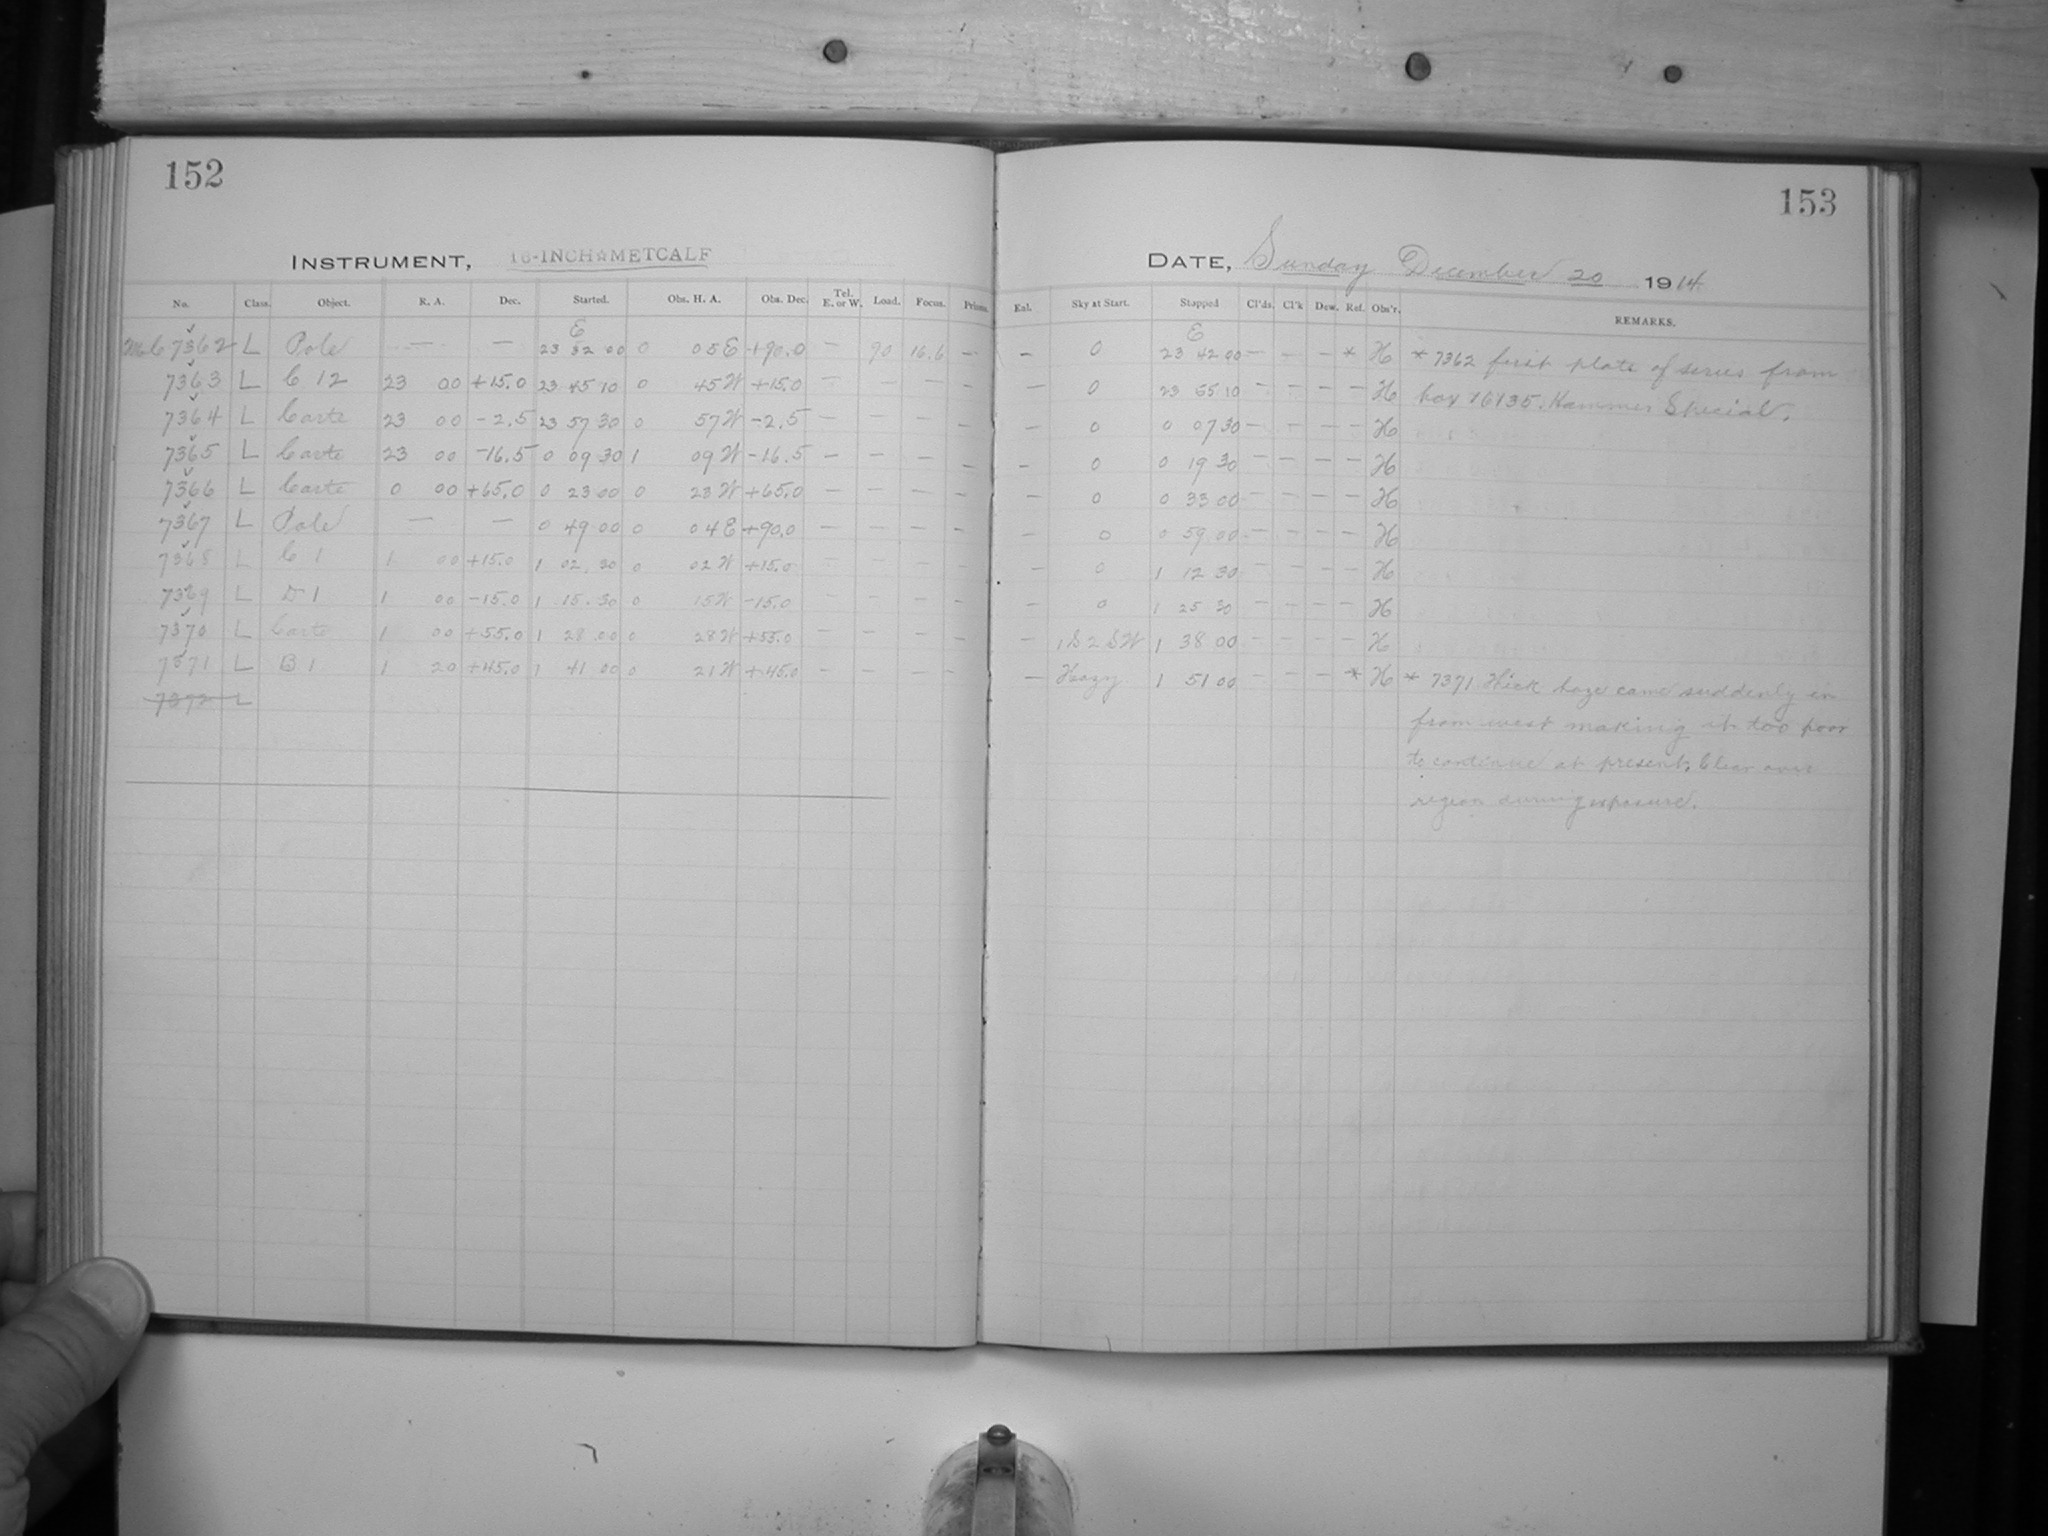 152
153
INSTRUMENT, 16-INCH☆METCALF
DATE, Sunday December 20 1914
No. Class. Object. R. A. Dec. Started. Obs. H. A. Obs. Dec. Tel. E. or W. Load. Focus. Prisms. Enl. Sky at Start. Stopped Cl'ds. Cl'k Dew. Ref. Obs'r. REMARKS.
E E
MC 7362 L Pole — — 23 32 00 0 05 E +90.0 — 90 16.6 — — 0 23 42 00 — — — * H * 7362 first plate of series from
7363 L C 12 23 00 +15.0 23 45 10 0 45 W +15.0 — — — — — 0 23 55 10 — — — — H box 16135. Hammer Special.
7364 L Carte 23 00 -2.5 23 57 30 0 57 W -2.5 — — — — — 0 0 07 30 — — — — H
7365 L Carte 23 00 -16.5 0 09 30 1 09 W -16.5 — — — — — 0 0 19 30 — — — — H
7366 L Carte 0 00 +65.0 0 23 00 0 23 W +65.0 — — — — — 0 0 33 00 — — — — H
7367 L Pole — — 0 49 00 0 04 E +90.0 — — — — — 0 0 59 00 — — — — H
7368 L C 1 1 00 +15.0 1 02 30 0 02 W +15.0 — — — — — 0 1 12 30 — — — — H
7369 L D 1 1 00 -15.0 1 15 30 0 15 W -15.0 — — — — — 0 1 25 30 — — — — H
7370 L Carte 1 00 +55.0 1 28 00 0 28 W +55.0 — — — — — 1 S 2 SW 1 38 00 — — — — H
7371 L B 1 1 20 +45.0 1 41 00 0 21 W +45.0 — — — — — Hazy 1 51 00 — — — * H * 7371 Thick haze came suddenly in
7372 L
from west making it too poor
to continue at present. Clear over
region during exposure.